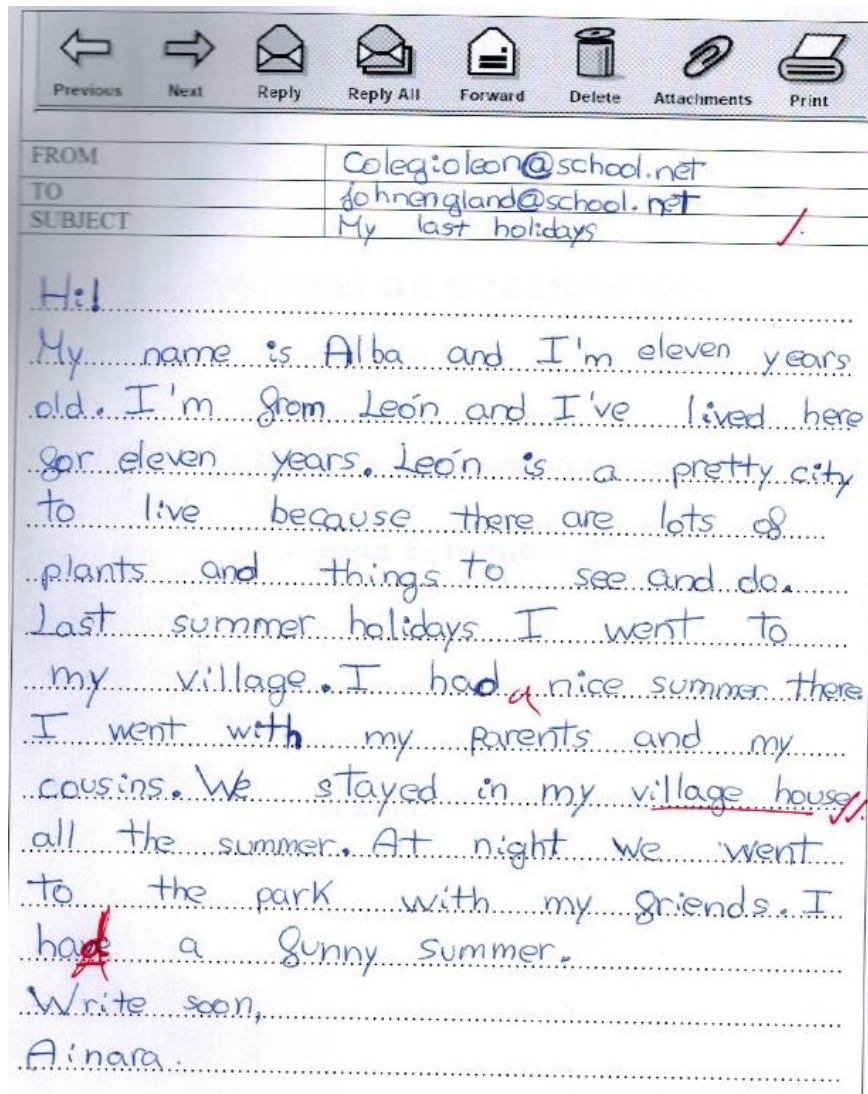 Previous Next Reply Reply All Forward Delete Attachments Print
FROM Colegioleon@school.net
TO johnengland@school.net
SUBJECT My last holidays
Hi!
My name is Alba and I'm eleven years
old. I'm from León and I've lived here
for eleven years. León is a pretty city
to live because there are lots of
plants and things to see and do.
Last summer holidays I went to
my village. I had a nice summer there
I went with my parents and my
cousins. We stayed in my village house
all the summer. At night we went
to the park with my friends. I
had a funny summer.
Write soon,
Ainara.